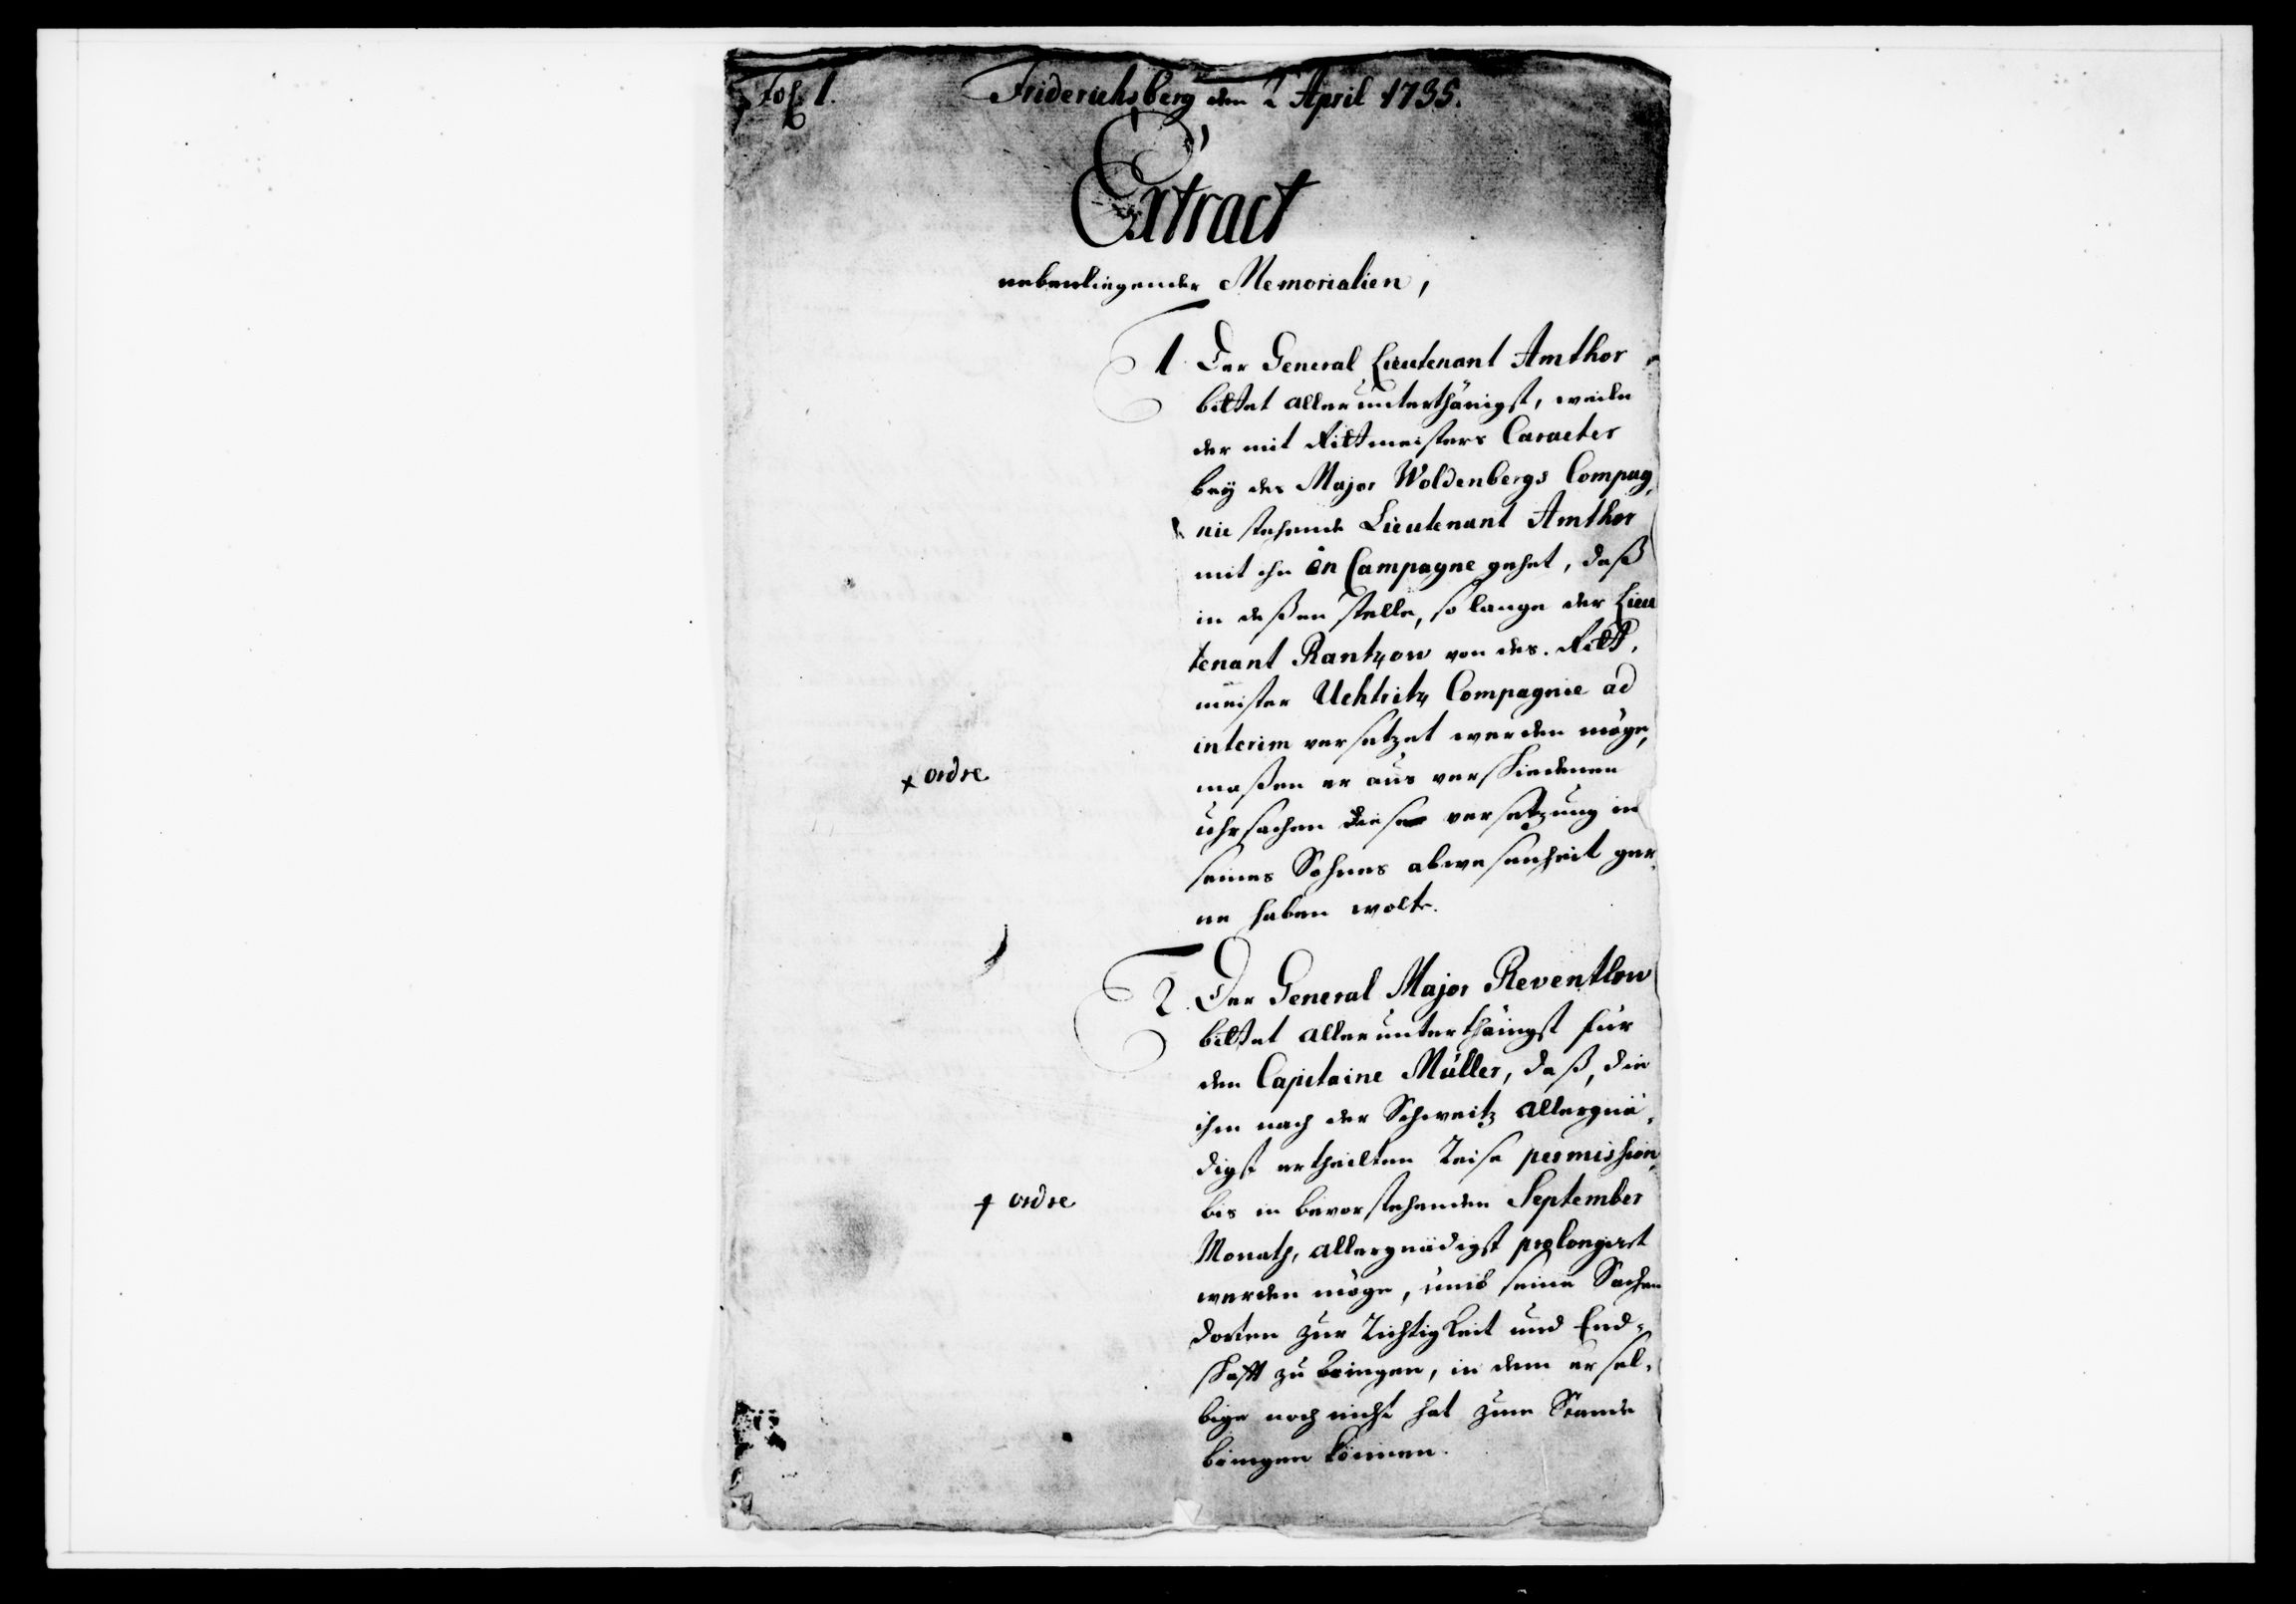 Fol. 1.
Friderichsberg den 2 April 1735.
Extract
nebenliegender Memorialien,
1. Der General Lieutenant Amthor
bittet allerunterthänigst, weile
der mit Rittmeisters Caracter
beÿ des Major Woldenbergs Compag,
nie stehende Lieutenant Amthor
mit ihn in Campagne gehet, daß
in deßen stelle, so lange der Lieu
tenant Rantzow von des Ritt,
meister Uchtritz Compagnie ad
interim versetzet werden möge,
maßen er aus verschiedenen
uhrsachen diese versetzung in
seines Sohnes abwesenheit ger,
ne haben wolte.
x ordre
2. Der General Major Reventlow
bittet allerunterthänigst für
den Capitaine Müller, daß, die
ihm nach der Schweitz allergnä,
digst ertheilten Reise permission,
bis in bevorstehenden September
Monath, allergnädigst prolongiret
werden möge, umb seine Sachen
dorten zur Richtigkeit und End-
schafft zu bringen, in dem er sel,
bige noch nicht hat zum Stande
bringen können.
+ ordre